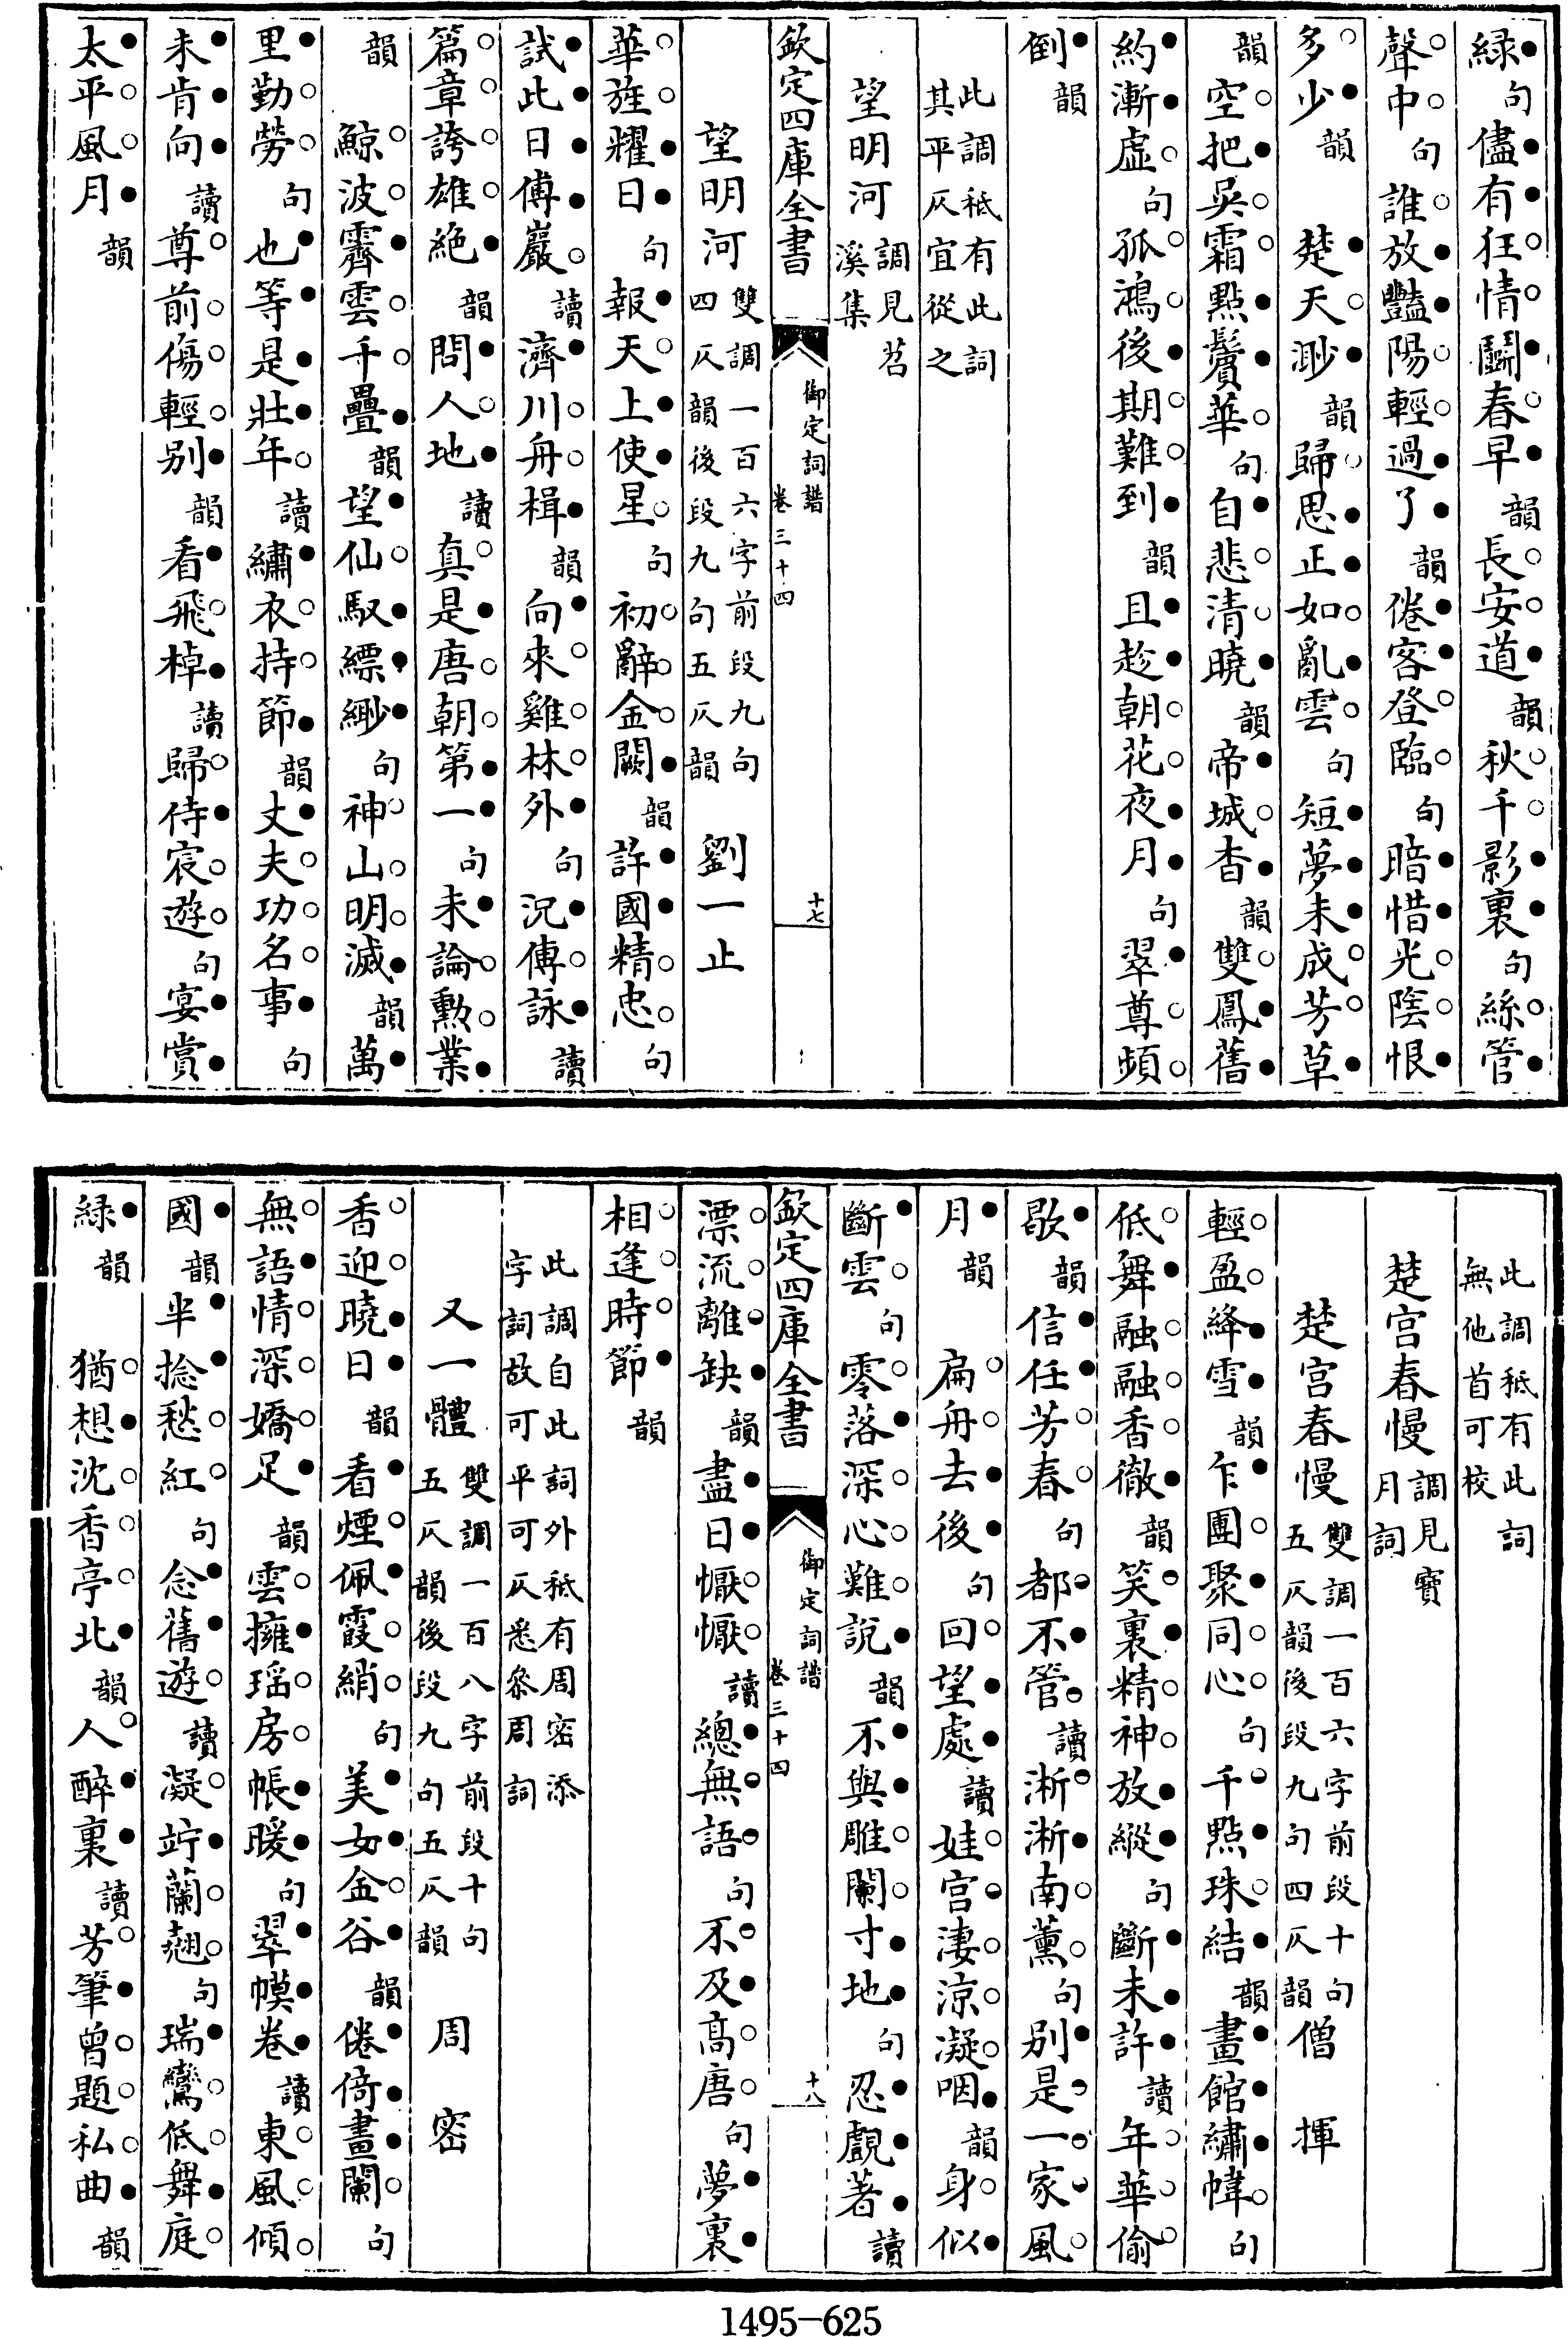 綠句儘有狂情鬭春早韻長安道韻秋千影裏句絲管
聲中句誰放豔陽輕過了韻倦客登臨句暗惜光陰恨
多少韻 楚天渺韻歸思正如亂雲句短夢未成芳草
韻空把吳霜點鬢華句自悲清曉韻帝城杳韻雙鳳舊
約漸虛句孤鴻後期難到韻且趁朝花夜月句翠尊頻
倒韻
此調秪有此詞
其平仄宜從之
望明河調見苕
溪集
欽定四庫全書 御定詞譜 卷三十四 十七
望明河雙調一百六字前段九句
四仄韻後段九句五仄韻 劉一止
華旌耀日句報天上使星句初辭金闕韻許國精忠句
試此日傅巖讀濟川舟楫韻向來雞林外句況傳詠讀
篇章誇雄絶韻問人地讀真是唐朝第一句未論勲業
韻 鯨波霽雲千疊韻望仙馭縹緲句神山明滅韻萬
里勤勞句也等是壯年讀繡衣持節韻丈夫功名事句
未肯向讀尊前傷輕别韻看飛棹讀歸侍宸遊句宴賞
太平風月韻
此調秪有此詞
無他首可校
楚宫春慢調見寶
月詞
楚宫春慢雙調一百六字前段十句
五仄韻後段九句四仄韻 僧 揮
輕盈絳雪韻乍團聚同心句千點珠結韻畫館繡幃句
低舞融融香徹韻笑裏精神放縱句斷未許讀年華偷
歇韻信任芳春句都不管讀淅淅南薰句别是一家風
月韻 扁舟去後句回望處讀娃宫淒涼凝咽韻身似
斷雲句零落深心難說韻不與雕闌寸地句忍覷著讀
漂流離缺韻盡日懨懨讀總無語句不及高唐句夢裏
相逢時節韻
此調自此詞外秪有周密添
字詞故可平可仄悉叅周詞
欽定四庫全書 御定詞譜 卷三十四 十八
又一體雙調一百八字前段十句
五仄韻後段九句五仄韻 周 密
香迎曉日韻看煙佩霞綃句美女金谷韻倦倚畫闌句
無語情深嬌足韻雲擁瑶房帳暖句翠幙卷讀東風傾
國韻半捻愁紅句念舊遊讀凝竚蘭翹句瑞鸞低舞庭
綠韻 猶想沈香亭北韻人醉裏讀芳筆曾題私曲韻
1495-625